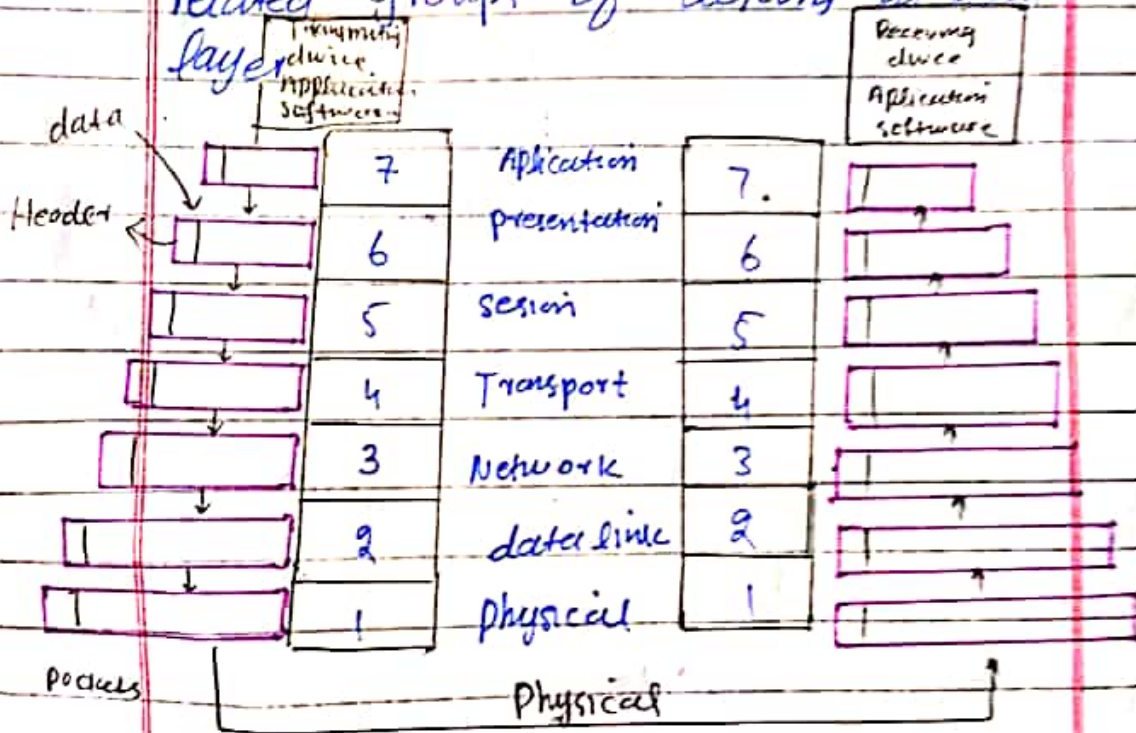 related groups of
layer
Transmitting
device
Application
Software
Receiving
device
Aplication
software
data
Header
7 Aplication 7.
6 presentation 6
5 sesion 5
4 Transport 4
3 Network 3
2 data link 2
1 Physical 1
Packets
Physical